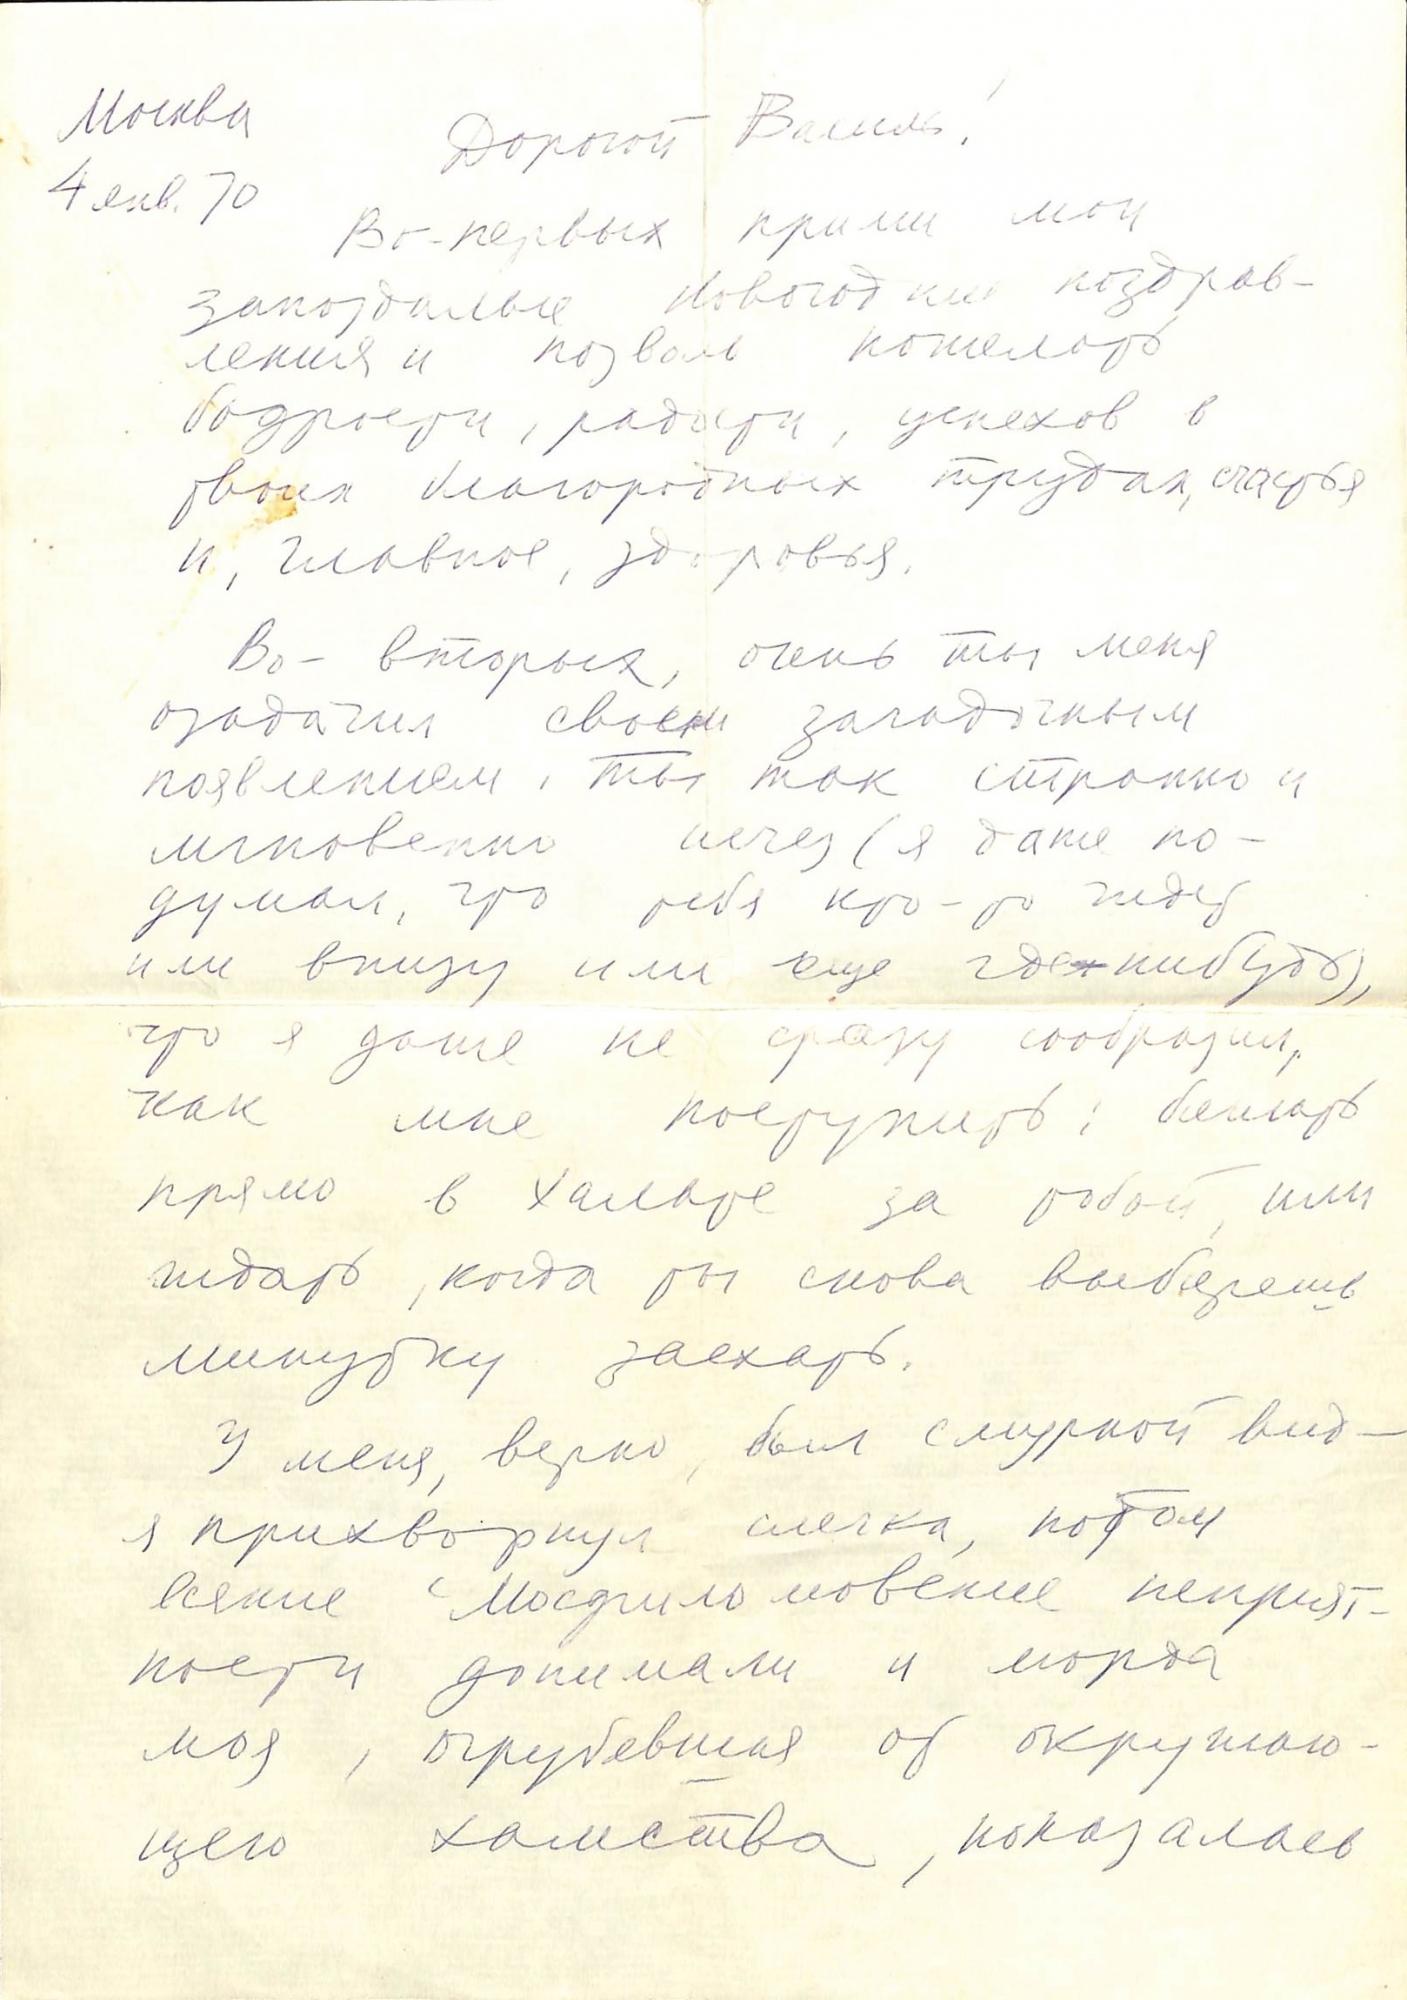 Москва
4 янв. 70
Дорогой Василь!
Во-первых прими мои
запоздалые новогодние поздрав-
ления и позволь пожелать
бодрости, радости, успехов в
твоих благородных трудах, счастья
и, главное, здоровья.
Во-вторых, очень ты меня
озадачил своем загадочным
появлением. Ты так странно и
мгновенно исчез (я даже по-
думал, что тебя кто-то ждет
или внизу или еще где-нибудь),
что я даже не сразу сообразил,
как мне поступить: бежать
прямо в халате за тобой, или
ждать, когда ты снова выберешь
минутку заехать.
У меня, верно, был смурной вид -
я прихворнул слегка, потом
всякие Мосфильмовские неприят-
ности донимали и морда
моя, огрубевшая от окружаю-
щего хамства, показалась